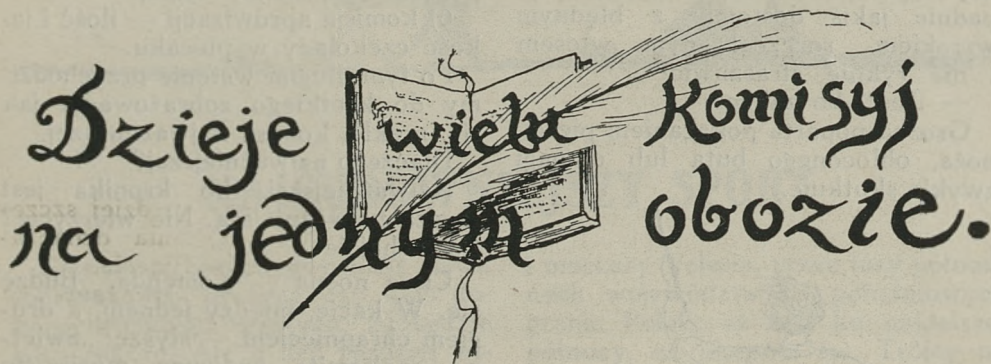 Dzieje wielu Komisyj
na jednym obozie.